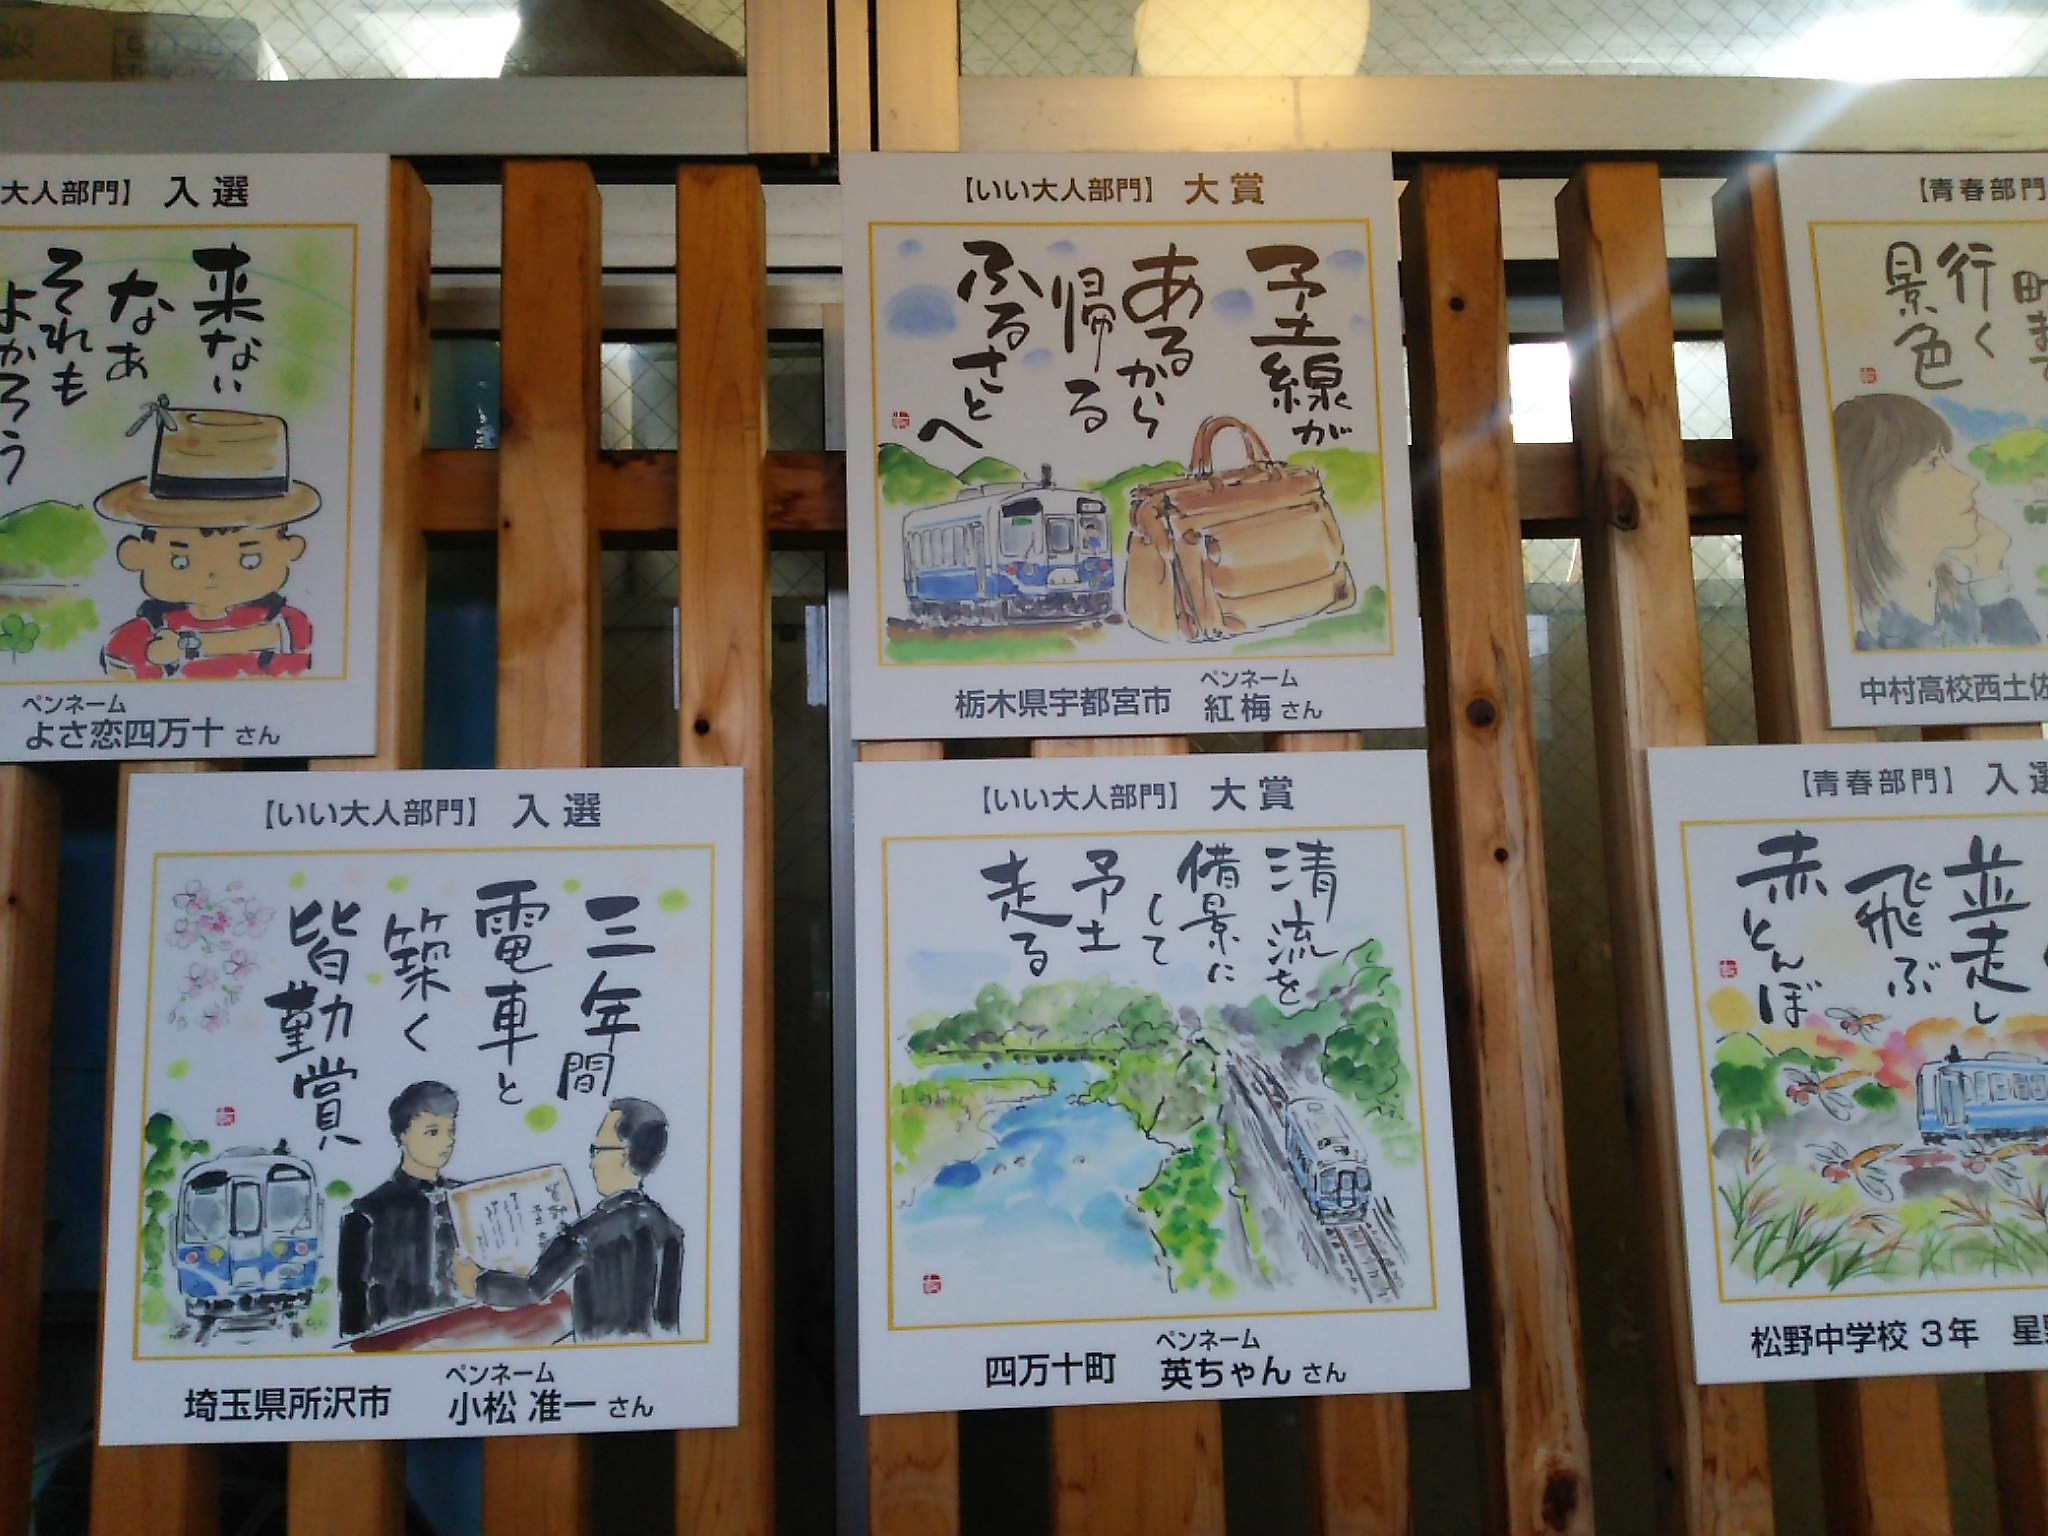 大人部門】 入選
来ない
なあ
それも
よかろう
ペンネーム
よさ恋四万十 さん
【いい大人部門】 大賞
予土線が
あるから
帰る
ふるさとへ
栃木県宇都宮市 ペンネーム
紅梅 さん
【青春部門
町まで
行く
景色
中村高校西土佐
【いい大人部門】 入選
三年間
電車と
築く
皆勤賞
埼玉県所沢市 ペンネーム
小松 准一 さん
【いい大人部門】 大賞
清流を
借景に
して
予土
走る
四万十町 ペンネーム
英ちゃん さん
【青春部門】 入選
並走し
飛ぶ
赤とんぼ
松野中学校 3年 星野